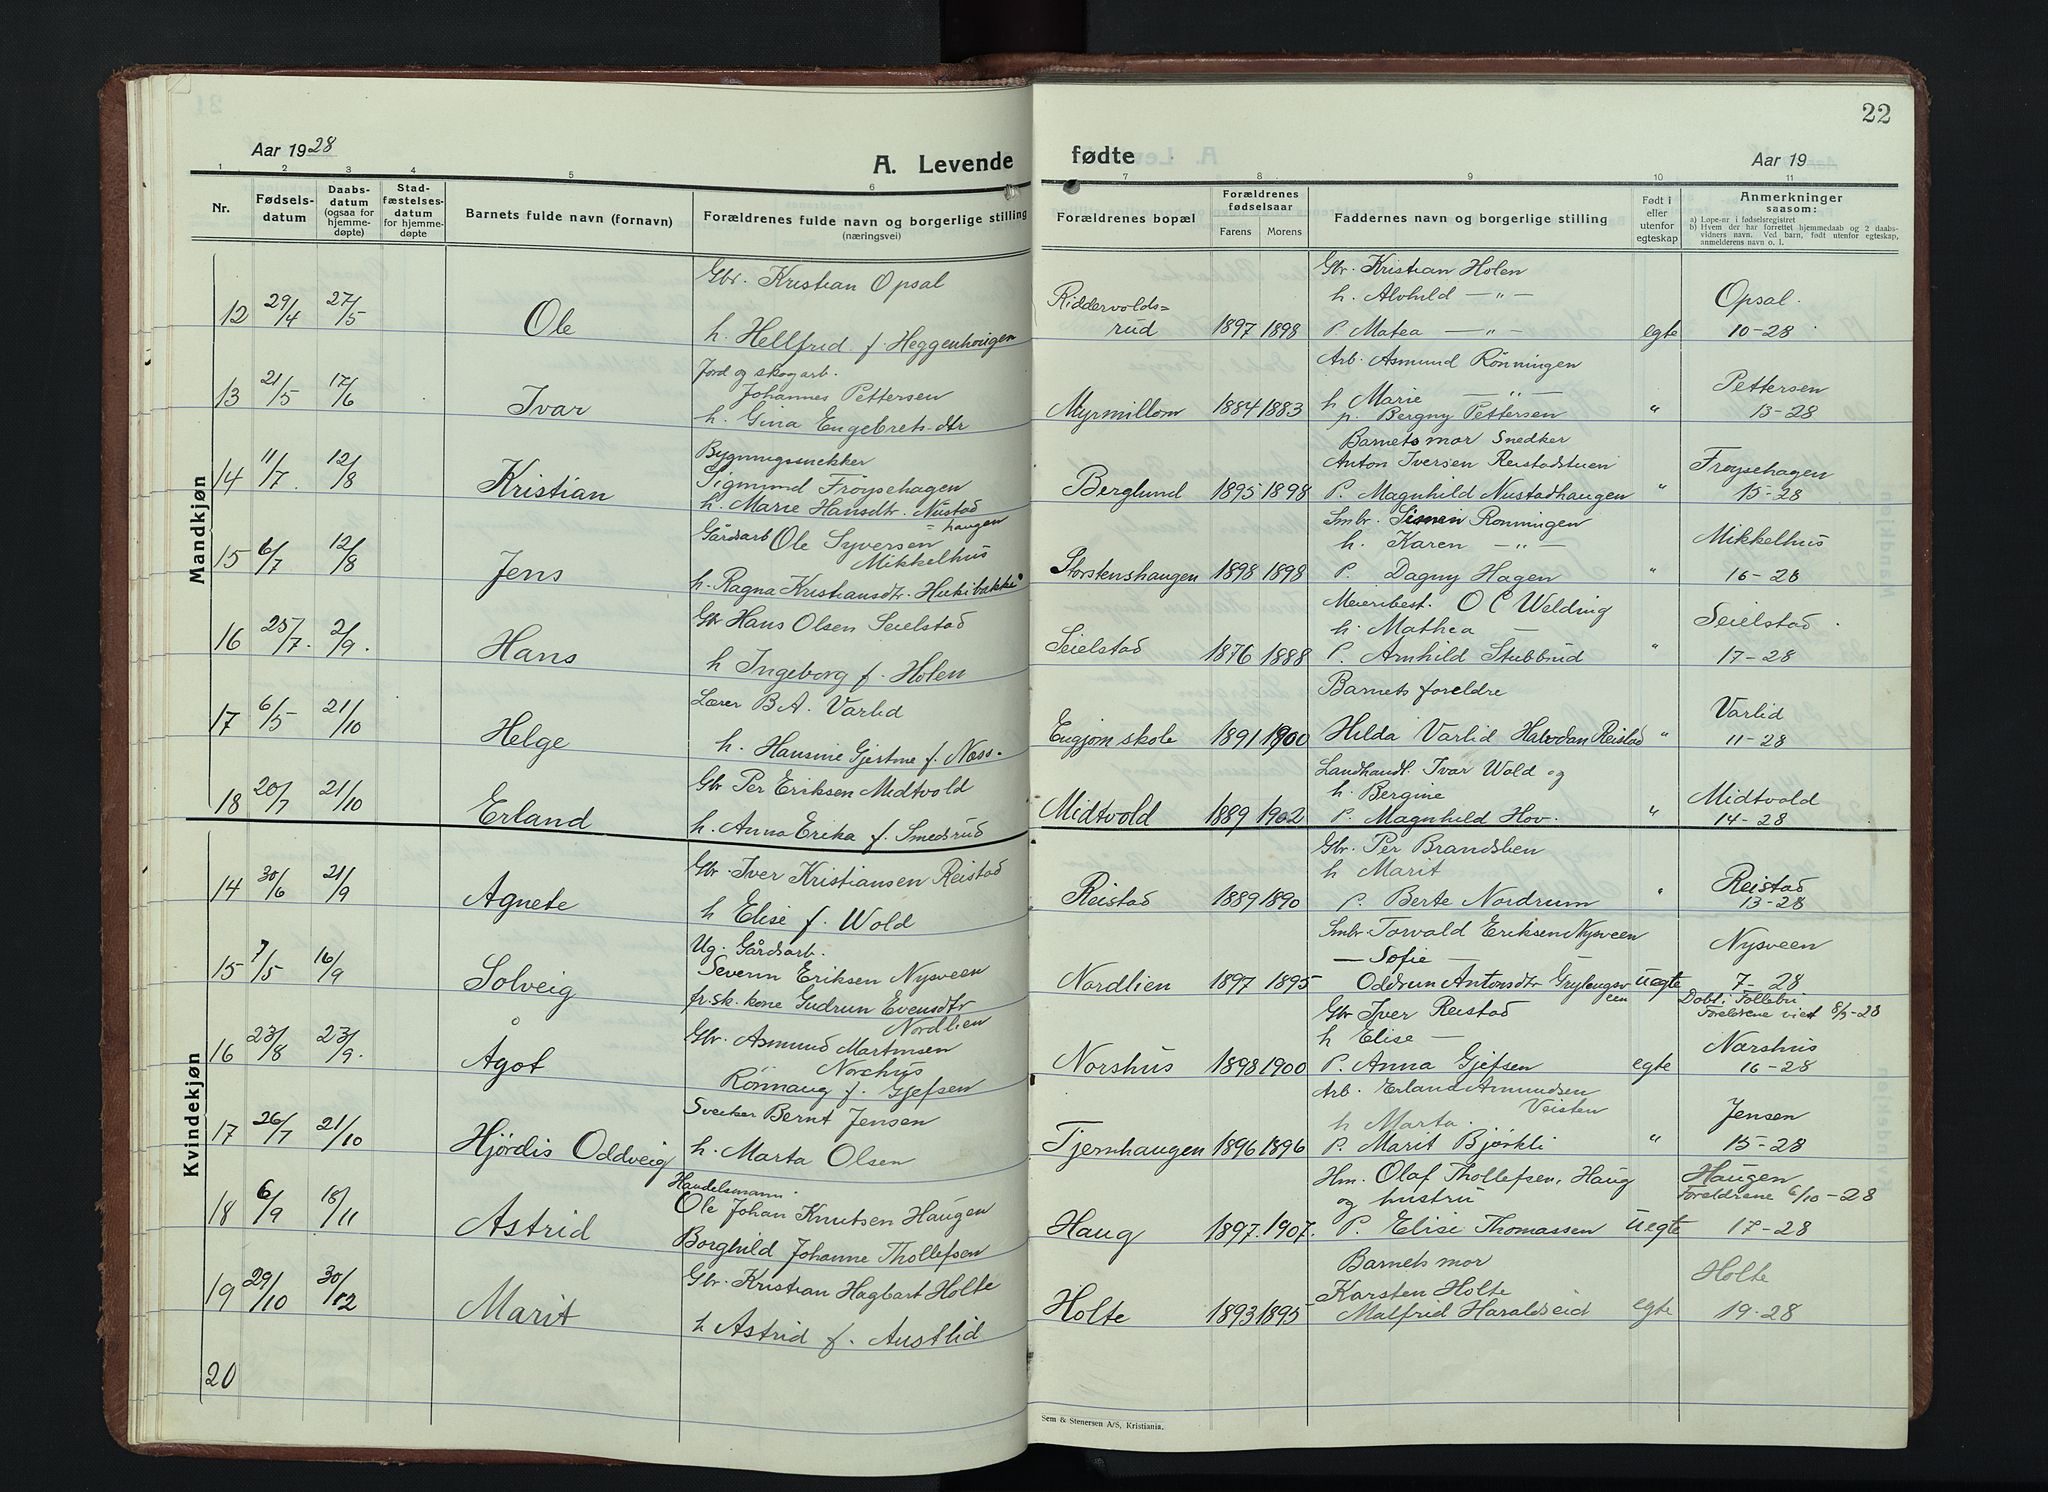 22
Aar 1928
A. Levende fødte
Aar 19
1 2 3 4 5 6 7 8 9 10 11
Nr.
Fødsels-
datum
Daabs-
datum
(ogsaa for
hjemme-
døpte)
Stad-
fæstelses-
datum
for hjemme-
døpte
Barnets fulde navn (fornavn)
Forældrenes fulde navn og borgerlige stilling
(næringsvei)
Forældrenes bopæl
Forældrenes
fødselsaar
Farens Morens
Faddernes navn og borgerlige stilling
Født i
eller
utenfor
egteskap
Anmerkninger
saasom:
a) Løpe-nr i fødselsregistret
b) Hvem der har forrettet hjemmedaab og 2 daabs-
vidners navn. Ved barn, født utenfor egteskap,
anmelderens navn o. l.
Mandkjøn
12 29/4 27/5 Ole
Gbr. Kristian Opsal
h. Hellfred f. Heggenhougen
Riddervolds=
rud
1897 1898
Gbr. Kristian Holen
h. Alvhild — " —
p. Matea — " —
egte
Opsal.
10-28
13 21/5 17/6 Ivar
Jord og skogarb.
Johannes Pettersen
h. Gina Engebrets-dtr
Myrmillom 1884 1883
Arb. Asmund Rønningen
h Marie — " —
p. Bergny Pettersen
"
Pettersen
13-28
14 11/7. 12/8 Kristian
Bygningssnekker
Sigmund Frøysehagen
h. Marie Hansdtr. Nustad
=haugen
Berglund 1895 1898
Barnets mor Snedker
Anton Iversen Reistadstuen
P. Magnhild Nustadhaugen
"
Frøysehagen
15-28
15 6/7 12/8 Jens
Gårdsarb Ole Syversen
Mikkelhus
h. Ragna Kristiansdtr.
Storstenshaugen 1898 1898
Smbr. Simen Rønningen
h. Karen — " —
P. Dagny Hagen
"
Mikkelhus
16-28
16 25/7. 2/9. Hans
Gbr Hans Olsen Seielstad
h Ingeborg f. Holen
Seielstad 1876 1888
Meieribest. O C Welding
h. Mathea —
P. Arnhild Stubbrud
"
Seielstad
17-28
17 6/5 21/10 Helge
Lærer B.A. Varlid
h. Hansine Gjertine f. Næss.
Engjom skole 1891 1900
Barnets foreldre
Hilda Varlid Halvdan Reistad
"
Varlid
11-28
18 20/7 21/10 Erland
Gbr Per Eriksen Midtvold
h. Anna Erika f. Smedsrud
Midtvold 1889 1902
Landhandl. Ivar Wold og
h. Bergine
P. Magnhild Hov.
"
Midtvold
14-28
Kvindekjøn
14 30/6 21/9 Agnete
Gbr. Iver Kristiansen Reistad
h Elise f. Wold
Reistad 1889 1890
Gbr. Per Brandslien
h Marit
p. Berte Nordrum
"
Reistad
13-28
15 7/5 16/9 Solveig
Ug. Gårdsarb.
Severin Eriksen Nysveen
fr.sk. kone Gudrun Evensdtr
Nordlien
Nordlien 1897 1895
Smbr Torvald Eriksen Nysveen
— Sofie —
Oddrun Antonsdtr
uegte
Nysveen
7-28
Døbt i Follebu
Foreldrene viet 8/5-28
16 23/8 23/9. Ågot
Gbr. Asmund Martinsen
Norshus
Rønnaug f. Gjefsen
Norshus 1898 1900
Gbr Iver Reistad
h Elise —
P. Anna Gjefsen
egte
Norshus
16-28
17 26/7 21/10 Hjørdis Oddveig
Sveiser Bernt Jensen
h. Marta Olsen
Tjernhaugen 1896 1896
Arb. Erland Amundsen
Veisten
h Marta.
P. Marit Bjørkli
"
Jensen
15-28
18 6/9 18/11 Astrid
Handelsmann.
Ole Johan Knutsen Haugen
Borghild Johanne Thollefsen
Haug 1897. 1907.
Hm. Olaf Thollefsen, Haug
og hustru
P. Elise Thomassen
uegte
Haugen
Foreldrene 6/10-28
17-28
19 29/10 30/12 Marit
Gbr. Kristian Hagbart Holte
h Astrid f. Austlid
Holte 1893 1895
Barnets mor
Karsten Holte
Malfrid Haraldseid
egte
Holte
19-28
20
Sem & Stenersen A/S, Kristiania.